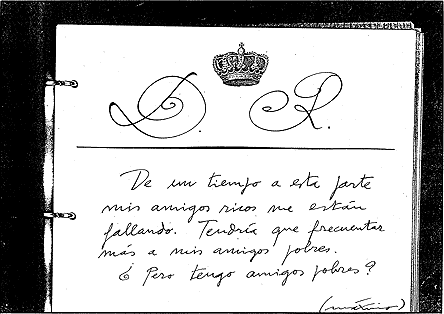 D. R.
De un tiempo a esta parte
mis amigos ricos me están
fallando. Tendría que frecuentar
más a mis amigos pobres.
¿ Pero tengo amigos pobres?
(máximo)